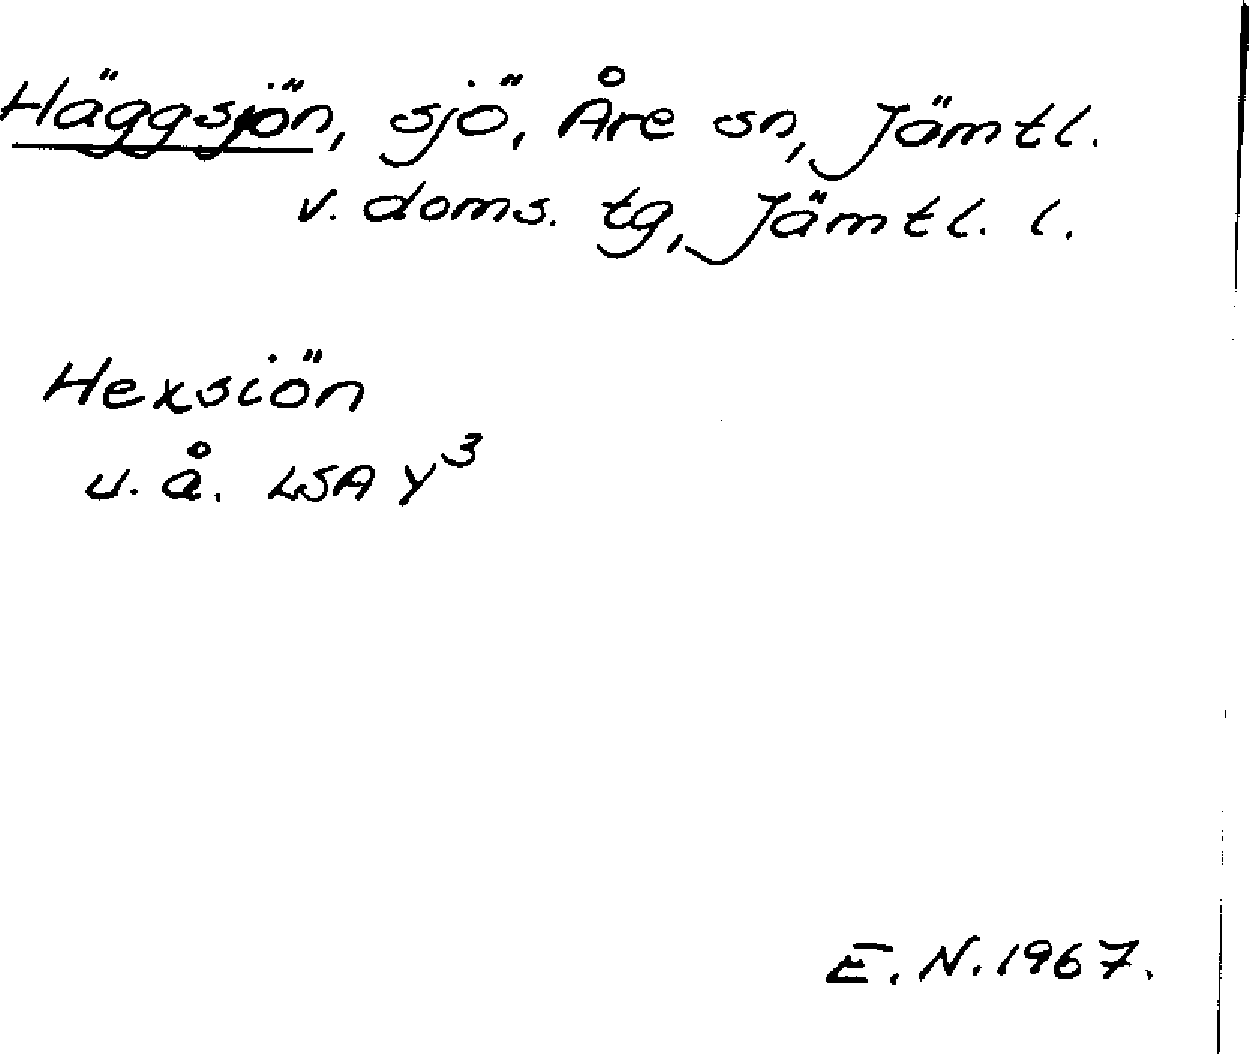 Häggsjön, sjö, Åre sn, Jämtl.
v. doms. tg, Jämtl. l.
Hexsiön
u. å. LSA Y³
E. N. 1967.